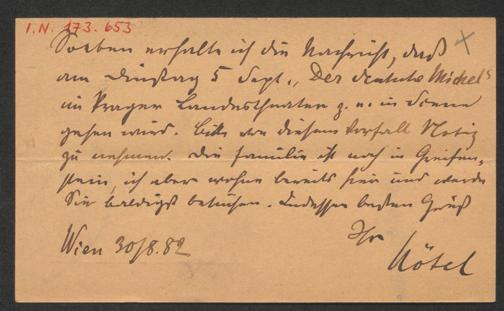 I.N. 173.653
Soeben erhalte ich die Nachricht, daß
am Dinstag 5 Sept. „Der deutsche Michel"
im Prager Landestheater z. e. in Scene
gehen wird. Bitte von diesem Vorfall Notiz
zu nehmen. Die Familie ist noch in Greifen-
stein, ich aber wohne bereits hier und werde
Sie baldigst besuchen. Indessen besten Gruß
Ihr
Wien 30/8.82
Nötel